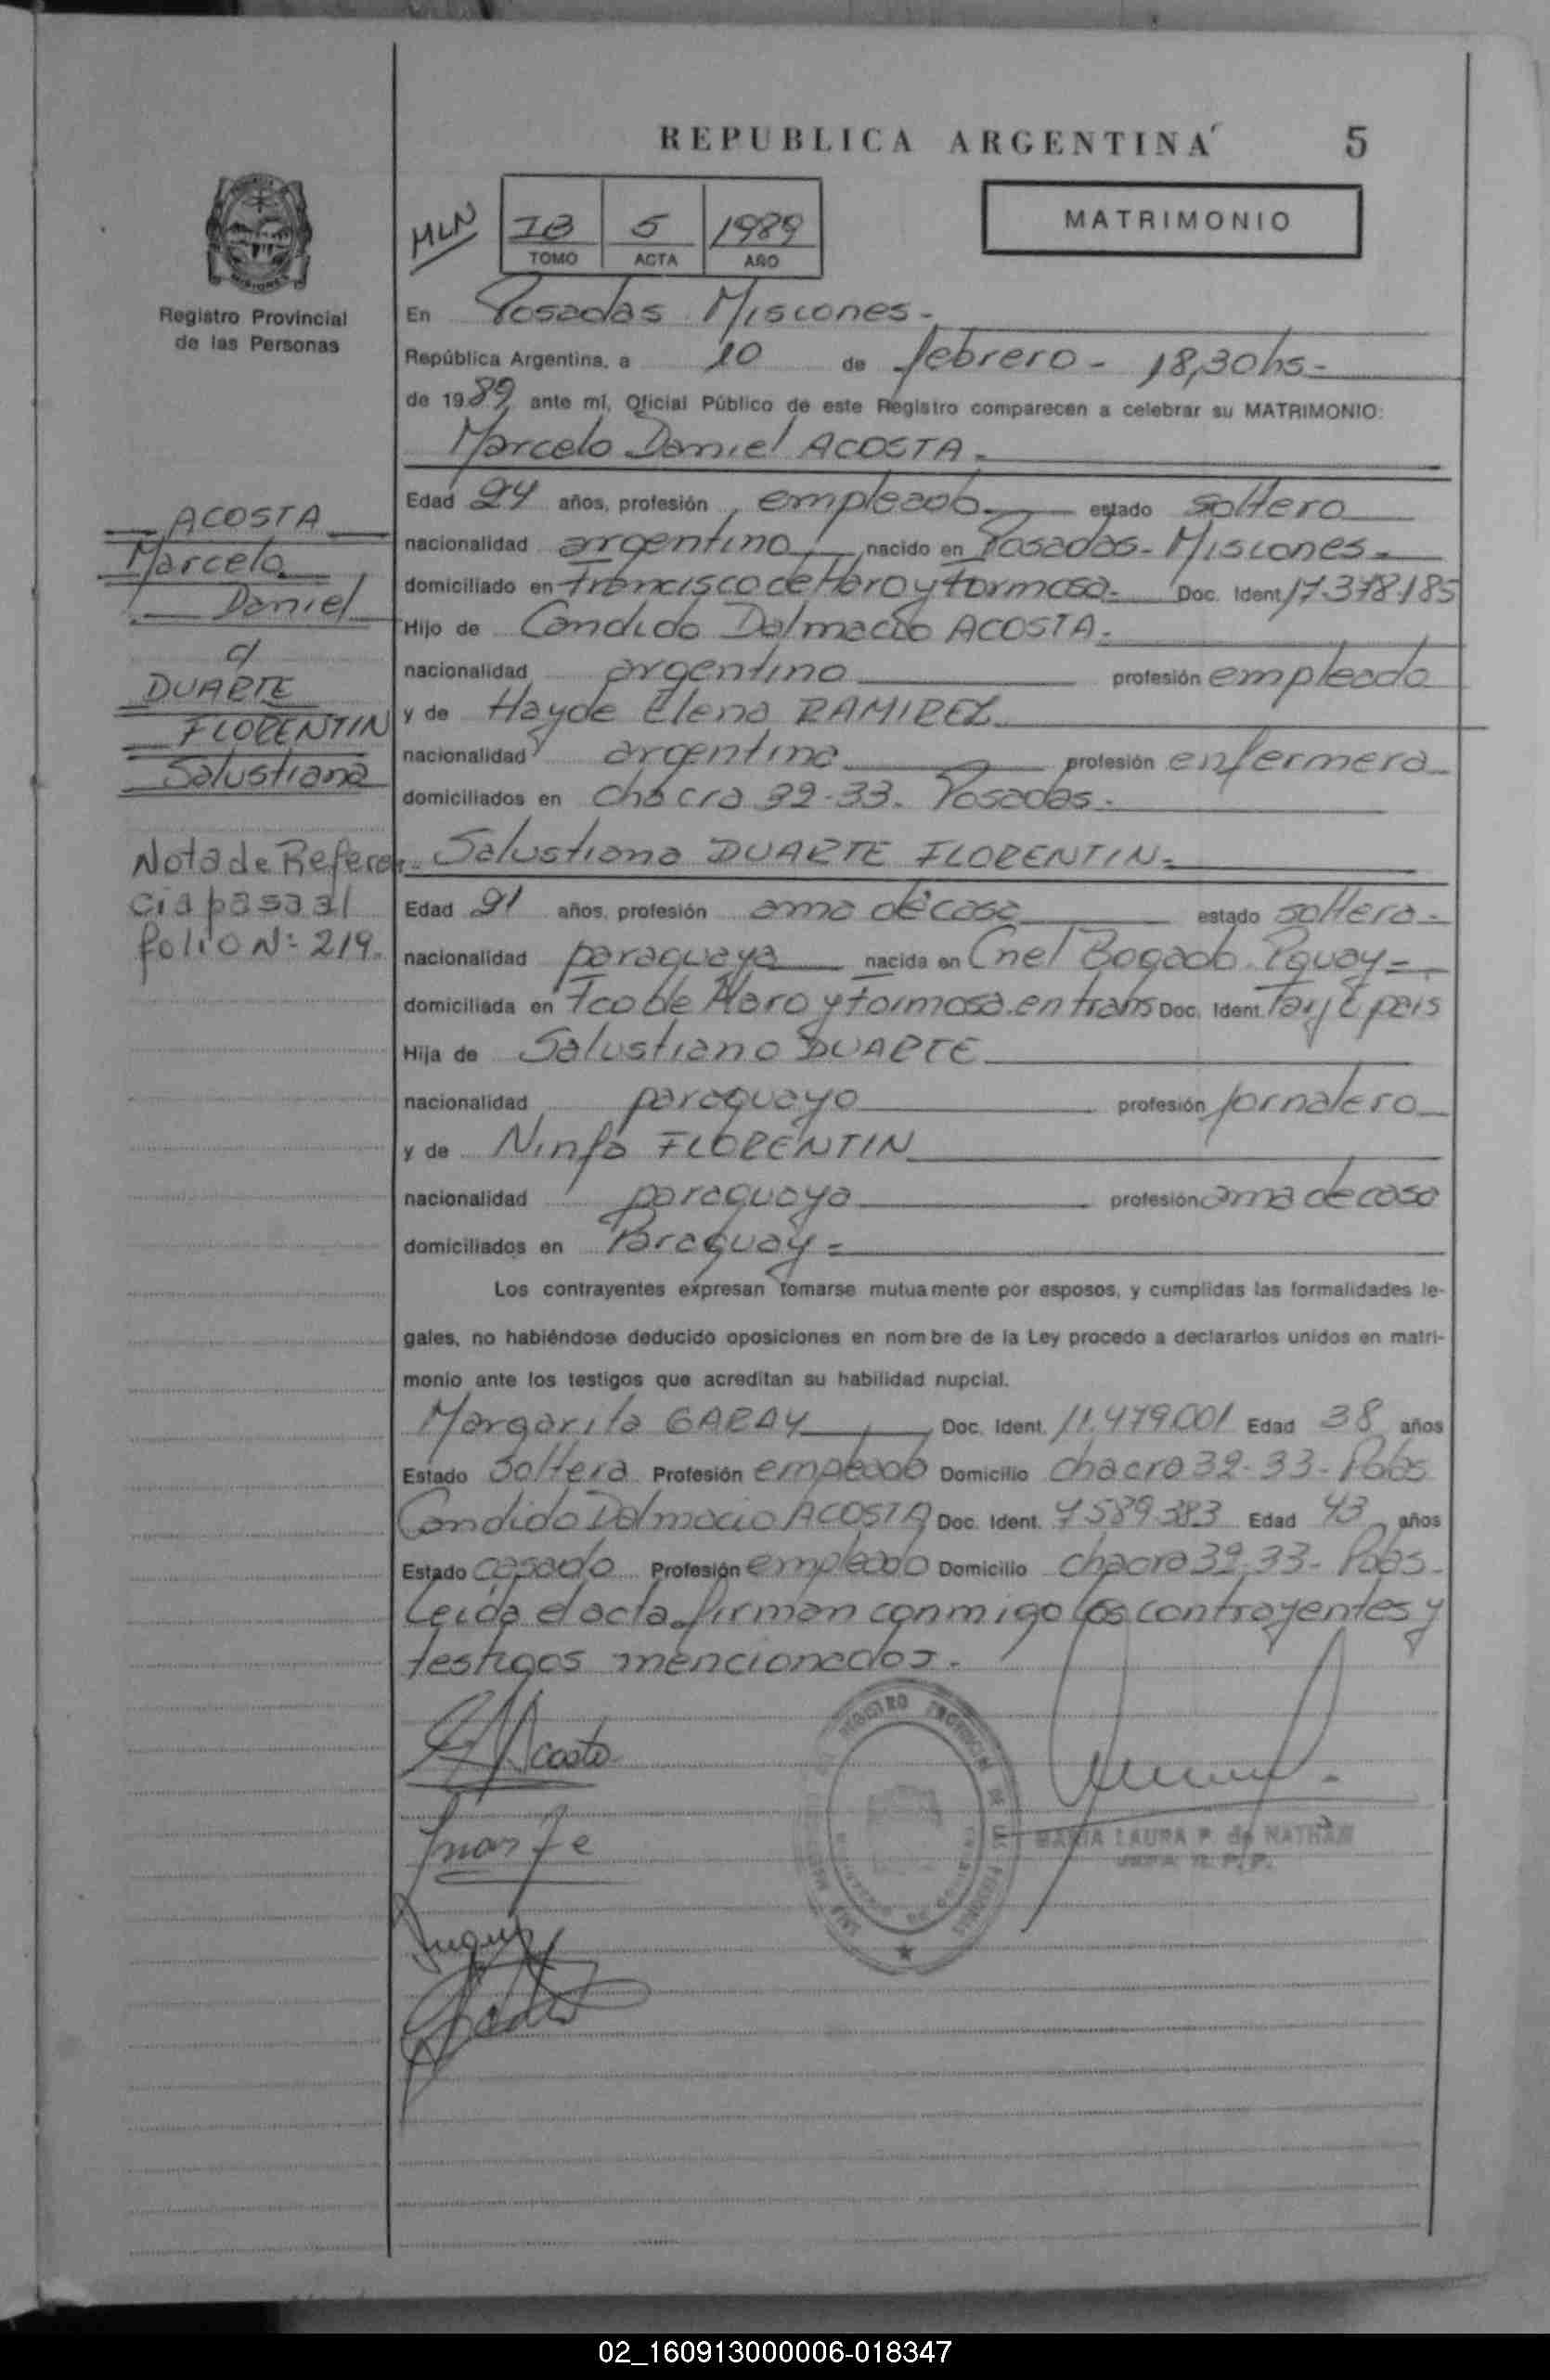 REPUBLICA ARGENTINA
5
MLN
IB 5 1989
TOMO ACTA AÑO
MATRIMONIO
MISIONES
Registro Provincial
de las Personas
En Posadas Misiones.-
República Argentina, a 10 de febrero - 18,30 hs-
de 1989, ante mí, Oficial Público de este Registro comparecen a celebrar su MATRIMONIO:
Marcelo Daniel ACOSTA.-
ACOSTA
Marcelo
Daniel
c/
DUARTE
FLORENTIN
Salustiana
Edad 24 años, profesión empleado.- estado soltero
nacionalidad argentino nacido en Posadas- Misiones.-
domiciliado en Francisco de Haro y Formosa.- Doc. Ident. 17.378.185
Hijo de Candido Dalmacio ACOSTA.-
nacionalidad argentino profesión empleado
y de Hayde Elena RAMIREZ
nacionalidad argentina profesión enfermera
domiciliados en chacra 32-33. Posadas.-
Nota de Referen-
cia pasa al
folio N: 219.
Salustiana DUARTE FLORENTIN.-
Edad 21 años, profesión ama de casa estado soltera-
nacionalidad paraguaya nacida en Cnel Bogado. Pguay=
domiciliada en Fco de Haro y Formosa. en trans Doc. Ident.
Hija de Salustiano DUARTE
nacionalidad paraguayo profesión jornalero
y de Ninfa FLORENTIN
nacionalidad paraguaya profesión ama de casa
domiciliados en Paraguay=
Los contrayentes expresan tomarse mutuamente por esposos, y cumplidas las formalidades le-
gales, no habiéndose deducido oposiciones en nombre de la Ley procedo a declararlos unidos en matri-
monio ante los testigos que acreditan su habilidad nupcial.
Margarita GARAY Doc. Ident. 11.479.001 Edad 38 años
Estado soltera Profesión empleada Domicilio chacra 32-33- Pdas
Candido Dalmacio ACOSTA Doc. Ident. 7.589.383 Edad 43 años
Estado casado Profesión empleado Domicilio chacra 32-33- Pdas-
Leida el acta firman conmigo los contrayentes y
testigos mencionados.-
Acosta
REGISTRO PROVINCIAL DE LAS PERSONAS
MARIA LAURA P. de NATHAN
02_160913000006-018347